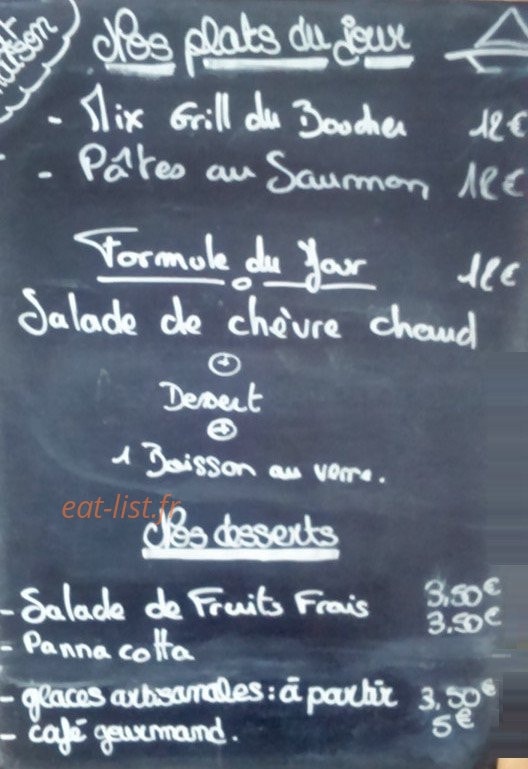 maison
Nos plats du jour
- Mix Grill du Boucher 12€
- Pâtes au Saumon 12€
Formule du Jour 12€
Salade de chèvre chaud
+
Dessert
+
1 Boisson au verre.
eat-list.fr
Nos desserts
- Salade de Fruits Frais 3,50€
- Panna cotta 3.50€
- glaces artisanales : à partir 3,50€
- café gourmand. 5€